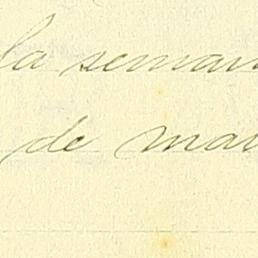 la seman
de mar